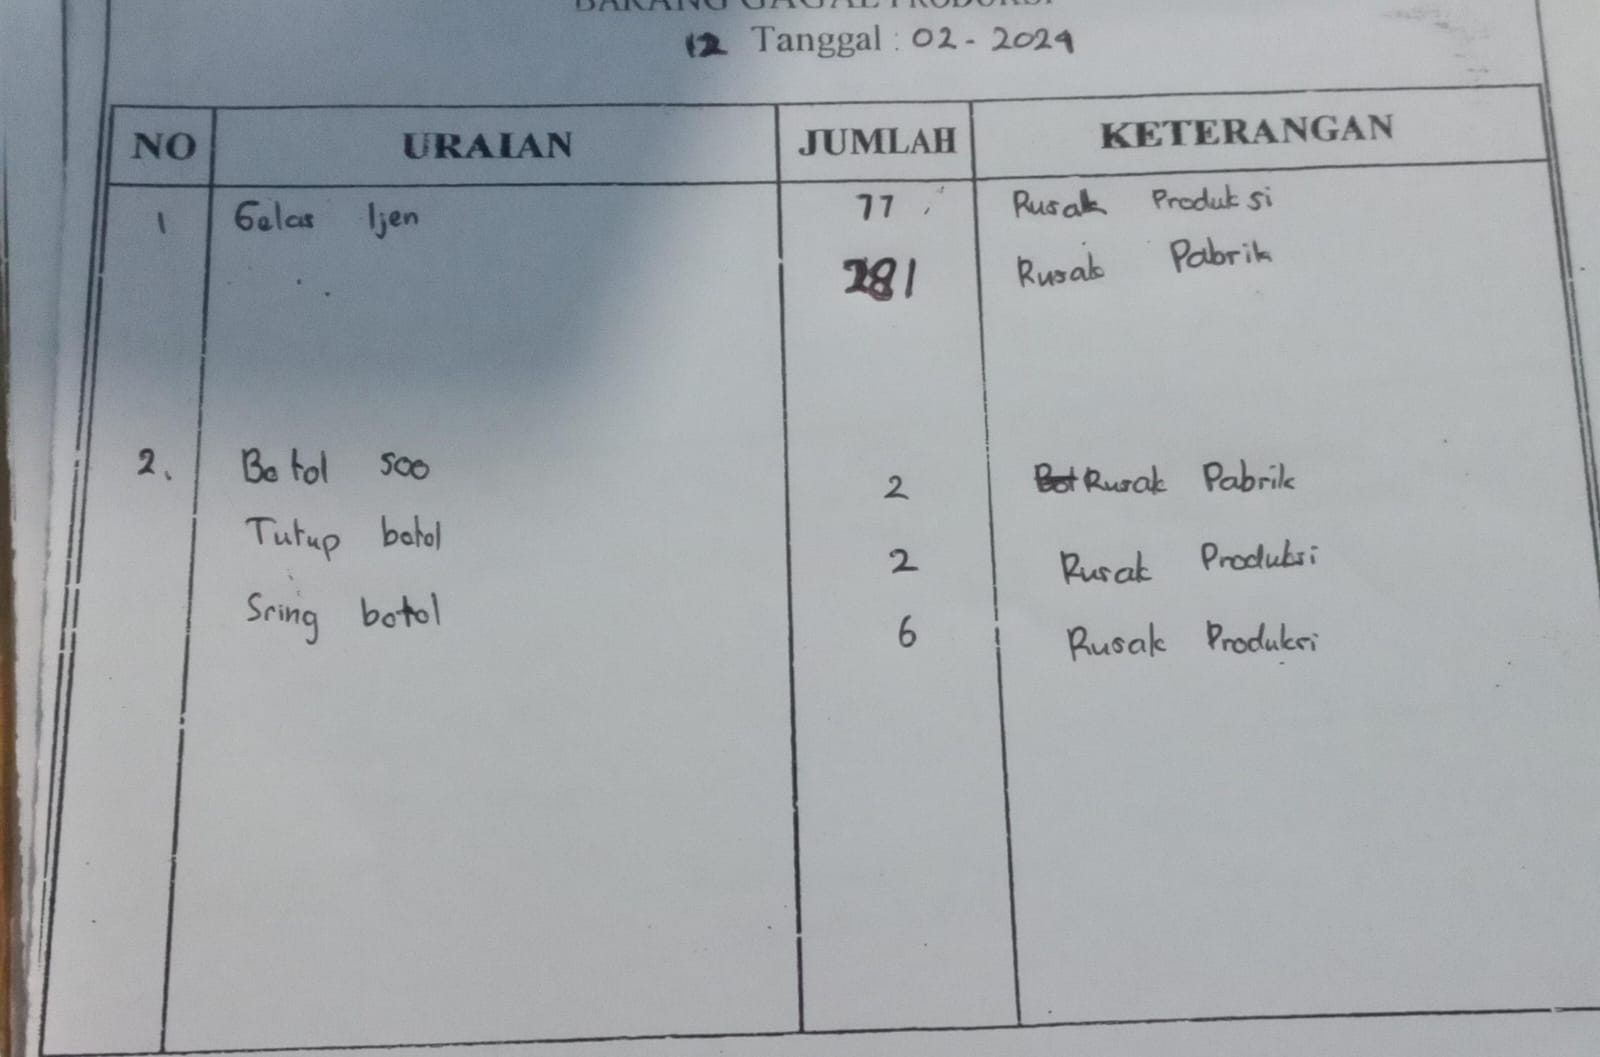 BARANG GAGAL PRODUKSI
12 Tanggal : 02 - 2024
NO URAIAN JUMLAH KETERANGAN
1 Gelas Ijen 77 Rusak Produksi
281 Rusak Pabrik
2. Botol 500 2 Rusak Pabrik
Tutup botol 2 Rusak Produksi
Sring botol 6 Rusak Produksi